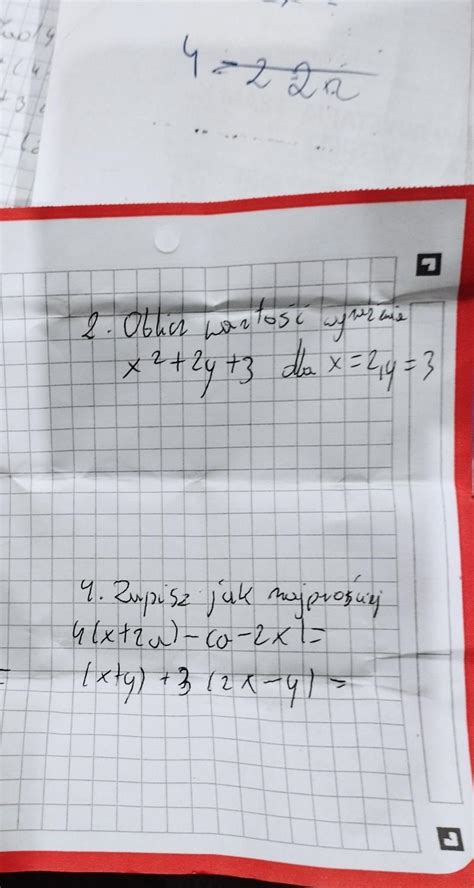 4 = 2 2a
2. Oblicz wartość wyrażenia
x² + 2y + 3 dla x = 2, y = 3
4. Zapisz jak najprościej
4(x+2a) - (a - 2x) =
(x+y) + 3(2x - y) =